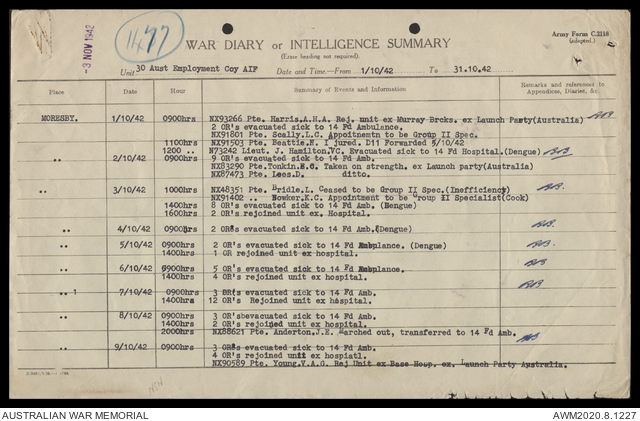 -3 NOV 1942
1477
WAR DIARY or INTELLIGENCE SUMMARY
(Erase heading not required).
Army Form C.2118
(adapted.)
Unit 30 Aust Employment Coy AIF Date and Time—From 1/10/42 To 31.10.42
Place Date Hour Summary of Events and Information Remarks and references to Appendices, Diaries, &c.
MORESBY. 1/10/42 0900hrs NX93266 Pte. Harris,A.H.A. Rej. unit ex Murray Brcks. ex Launch Party(Australia)
2 OR's evacuated sick to 14 Fd Ambulance.
NX91801 Pte. Scally,L.C. Appoitnemtn to be Group II Spec.
1100hrs NX91503 Pte. Beattie,N. I jured. D11 Forwarded 5/10/42
1200 .. N73242 Lieut. J. Hamilton.VC. Evacuated sick to 14 Fd Hospital.(Dengue)
.. 2/10/42 0900hrs 9 OR's evacuated sick to 14 Fd Amb.
NX83290 Pte.Tonkin. Taken on strength. ex Launch party(Australia)
NX87473 Pte. Lees.D. ditto.
.. 3/10/42 1000hrs NX48351 Pte. Bridle,L. Ceased to be Group II Spec.(Inefficiency)
NX91402 .. Bowker,K.C. Appointment to be Group II Specialist(Cook)
1400hrs 8 OR's evacuated sick to 14 Fd Amb. (Dengue)
1600hrs 2 OR's rejoined unit ex. Hospital.
.. 4/10/42 0900hrs 2 OR's evacuated sick to 14 Fd Amb.(Dengue)
.. 5/10/42 0900hrs 2 OR's evacuated sick to 14 Fd Ambplance. (Dengue)
1400hrs 1 OR rejoined unit ex hospital.
.. 6/10/42 0900hrs 5 OR's evacuated sick to 14 Fd Ambplance.
1400hrs 4 OR's rejoined unit ex hospital.
.. 7/10/42 0900hrs 3 OR's evacuated sick to 14 Fd Amb.
1400hrs 12 OR's Rejoined unit ex hospital.
.. 8/10/42 0900hrs 3 OR'sbevacuated sick to 14 Fd Amb.
1400hrs 2 OR's rejoined unit ex hospital.
2000hrs NX88621 Pte. Anderton.J.E. Marched out, transferred to 14 Fd Amb.
9/10/42 0900hrs 3 OR's evacuated sick to 14 Fd Amb.
4 OR's rejoined unit ex hospiatl.
NX90589 Pte. Young.V.A.G. Rej Unit ex Base Hosp. ex. Launch Party Australia.
AUSTRALIAN WAR MEMORIAL
AWM2020.8.1227